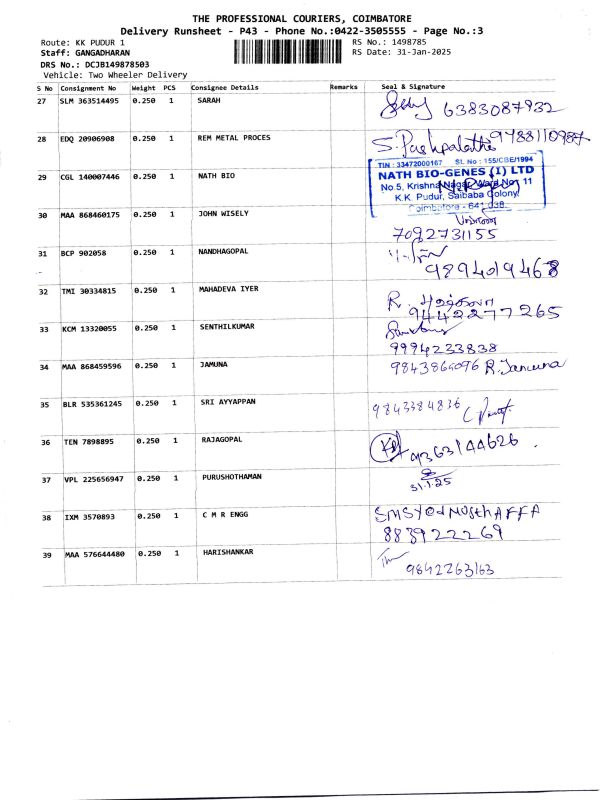 THE PROFESSIONAL COURIERS, COIMBATORE
Delivery Runsheet - P43 - Phone No.:0422-3505555 - Page No.:3
Route: KK PUDUR 1 RS No.: 1498785
Staff: GANGADHARAN RS Date: 31-Jan-2025
DRS No.: DCJB149878503
Vehicle: Two Wheeler Delivery
S No Consignment No Weight PCS Consignee Details Remarks Seal & Signature
27 SLM 363514495 0.250 1 SARAH 6383087932
28 EDQ 20906908 0.250 1 REM METAL PROCES S. Pushpalatha 9788110987
TIN : 33472000167 SL No : 155/CBE/1994
29 CGL 140007446 0.250 1 NATH BIO NATH BIO-GENES (I) LTD
No.5, Krishna Nagar, Ward No. 11
K.K. Pudur, Saibaba Colony
Coimbatore - 641 038.
30 MAA 868460175 0.250 1 JOHN WISELY
7092731155
31 BCP 902058 0.250 1 NANDHAGOPAL
9894019468
32 TMI 30334815 0.250 1 MAHADEVA IYER R.
9442277265
33 KCM 13320055 0.250 1 SENTHILKUMAR
9994233838
34 MAA 868459596 0.250 1 JAMUNA 9843864096 R. Jamuna
35 BLR 535361245 0.250 1 SRI AYYAPPAN 9843384836
36 TEN 7898895 0.250 1 RAJAGOPAL 9363144626
37 VPL 225656947 0.250 1 PURUSHOTHAMAN
31.1.25
38 IXM 3570893 0.250 1 C M R ENGG SMSYED MUSTHAFFA
8839222269
39 MAA 576644480 0.250 1 HARISHANKAR
9842263163